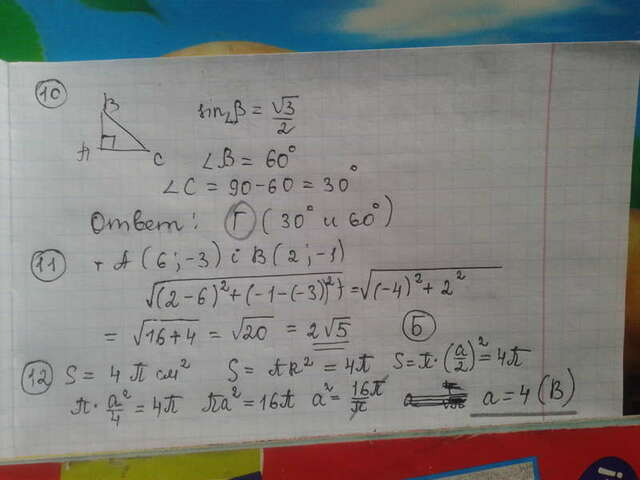 10
B
A
C
sin∠B = √3/2
∠B = 60°
∠C = 90-60 = 30°
Ответ: Г (30° и 60°)
11 т A (6; -3) i B (2; -1)
√((2-6)²+(-1-(-3))²) = √((-4)²+2²)
= √(16+4) = √20 = 2√5 Б
12 S = 4π см² S = πR² = 4π S = π·(a/2)² = 4π
π·a²/4 = 4π πa² = 16π a² = 16π/π a = 4 (В)